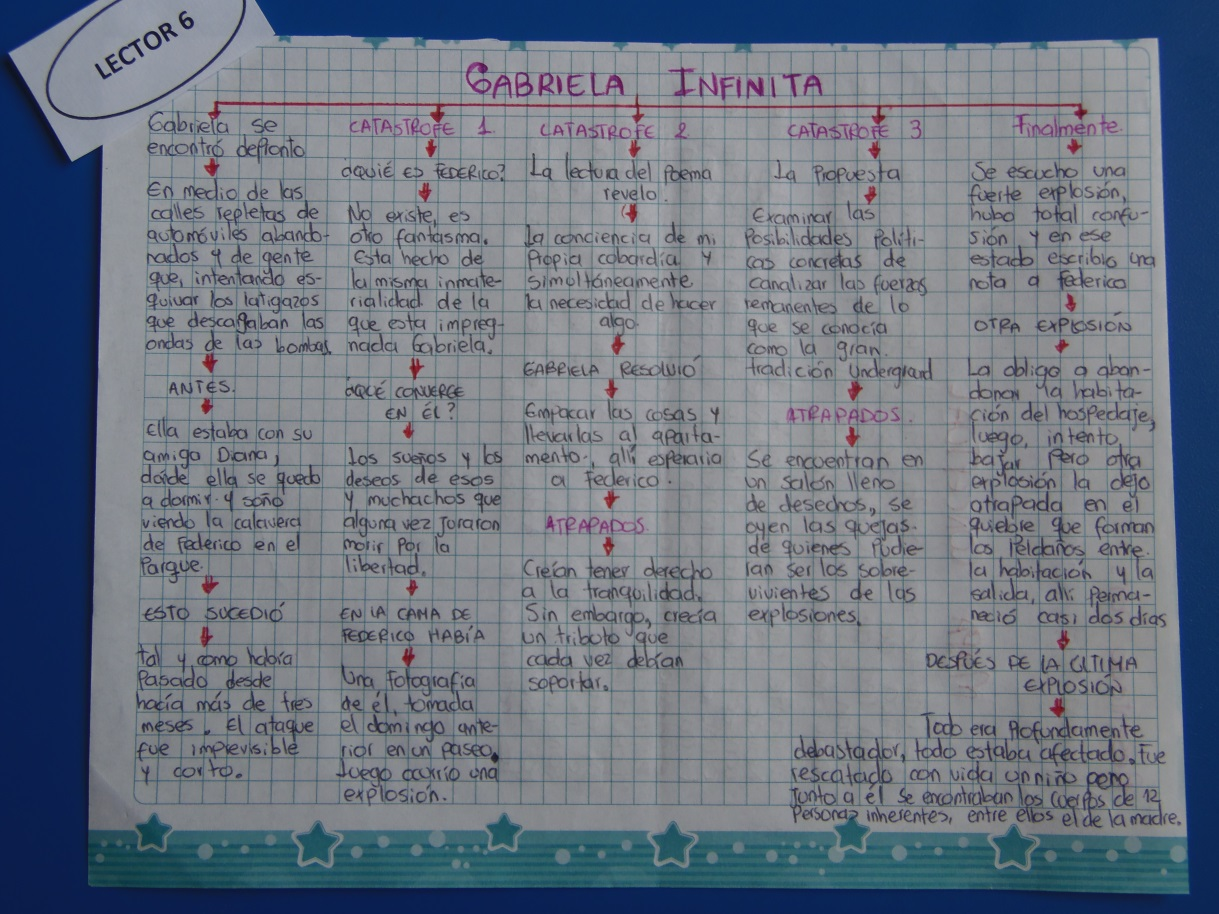 LECTOR 6
GABRIELA INFINITA
Gabriela se
encontró depronto
En medio de las
calles repletas de
automóviles abando-
nados y de gente
que, intentando es-
quivar los latigazos
que descargaban las
ondas de las bombas.
ANTES.
Ella estaba con su
amiga Diana,
dónde ella se quedo
a dormir y soño
viendo la calavera
de Federico en el
Parque.
ESTO SUCEDIÓ
tal y como había
Pasado desde
hacía más de tres
meses. El ataque
fue imprevisible
y corto.
CATASTROFE 1
¿QUIÉ ES FEDERICO?
No existe, es
otro fantasma.
Esta hecho de
la misma inmate-
rialidad de la
que esta impreg-
nada Gabriela.
¿QUÉ CONVERGE
EN ÉL?
Los sueños y los
deseos de esos
y muchachos que
alguna vez juraron
morir Por la
libertad.
EN LA CAMA DE
FEDERICO HABÍA
Una fotografía
de él, tomada
el domingo ante-
rior en un paseo,
luego ocurrio una
explosión.
CATASTROFE 2
La lectura del Poema
revelo.
La conciencia de mi
Propia cobardía y
simultáneamente
la necesidad de hacer
algo.
GABRIELA RESOLVIÓ
Empacar las cosas y
llevarlas al aparta-
mento, allí esperaria
a Federico.
ATRAPADOS
Creían tener derecho
a la tranquilidad.
Sin embargo, crecía
un tributo que
cada vez debían
soportar.
CATASTROFE 3
La Propuesta
Examinar las
Posibilidades Políti-
cas concretas de
canalizar las fuerzas
remanentes de lo
que se conocía
como la gran.
tradición Undergrand
ATRAPADOS.
Se encuentran en
un salón lleno
de desechos, se
oyen las quejas.
de quienes Pudie-
ran ser los sobre-
vivientes de las
explosiones.
Finalmente.
Se escucho una
fuerte explosión,
hubo total confu-
sión y en ese
estado escribio una
nota a federico
OTRA EXPLOSIÓN
La obligo a aban-
donar la habita-
ción del hospedaje,
luego, intento
bajar Pero otra
explosión la dejo
atrapada en el
quiebre que forman
los Peldaños entre.
la habitación y la
salida, allí Perma-
neció casi dos días
DESPUÉS DE LA ÚLTIMA
EXPLOSIÓN
Todo era Profundamente
debastador, todo estaba afectado. Fue
rescatado con vida un niño pero
Junto a él se encontraban los cuerpos de 12
Personas inherentes, entre ellos el de la madre.